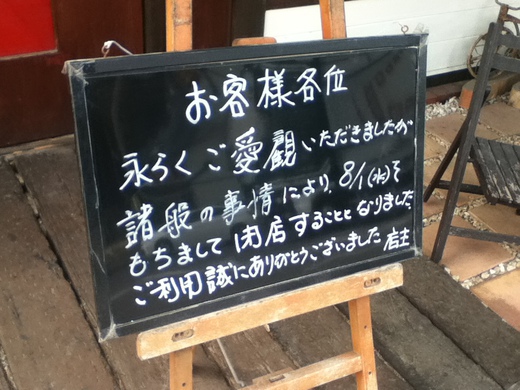 お客様各位
永らくご愛観いただきましたが
諸般の事情により、8/1(水)そ
もちまして閉店することとなりました
ご利用誠にありがとうございました 店主